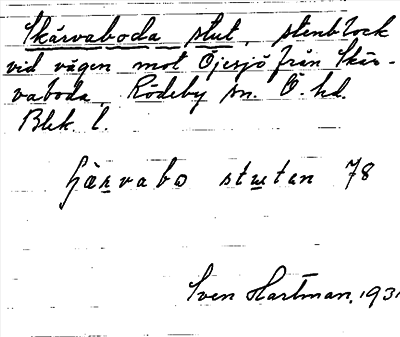 Skärvaboda stut, stenblock
vid vägen mot Öjesjö från Skär-
vaboda, Rödeby sn. Ö. hd.
Blek. l.
stuten 78
Sven Hartman, 1931